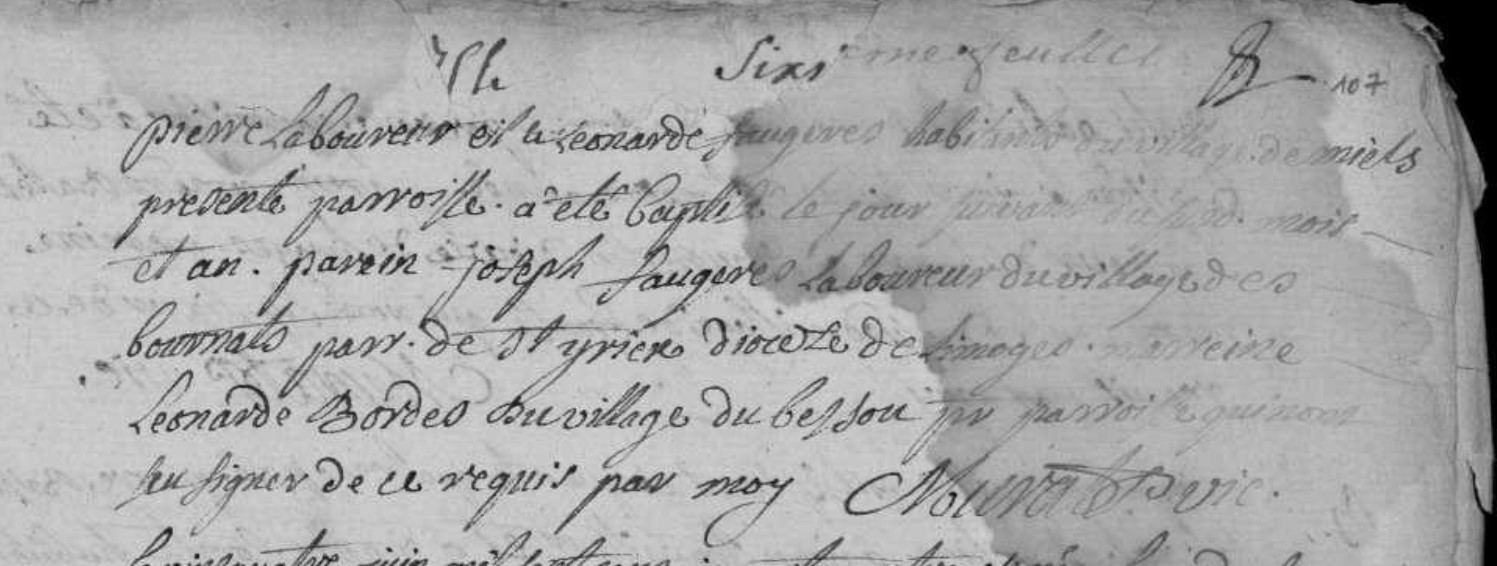 Sixieme feuillet 107
pierre laboureur et de Leonarde faugeres habitants du village de miets
presente parroisse. a été baptisé le jour suivant mois
et an. parein joseph faugeres laboureur du village des
bournats parr. de st yrieix diocèze de limoges. marreine
Leonarde Bordes du village du bessou pr parroisse qui nont
seu signer de ce requis par moy vic.